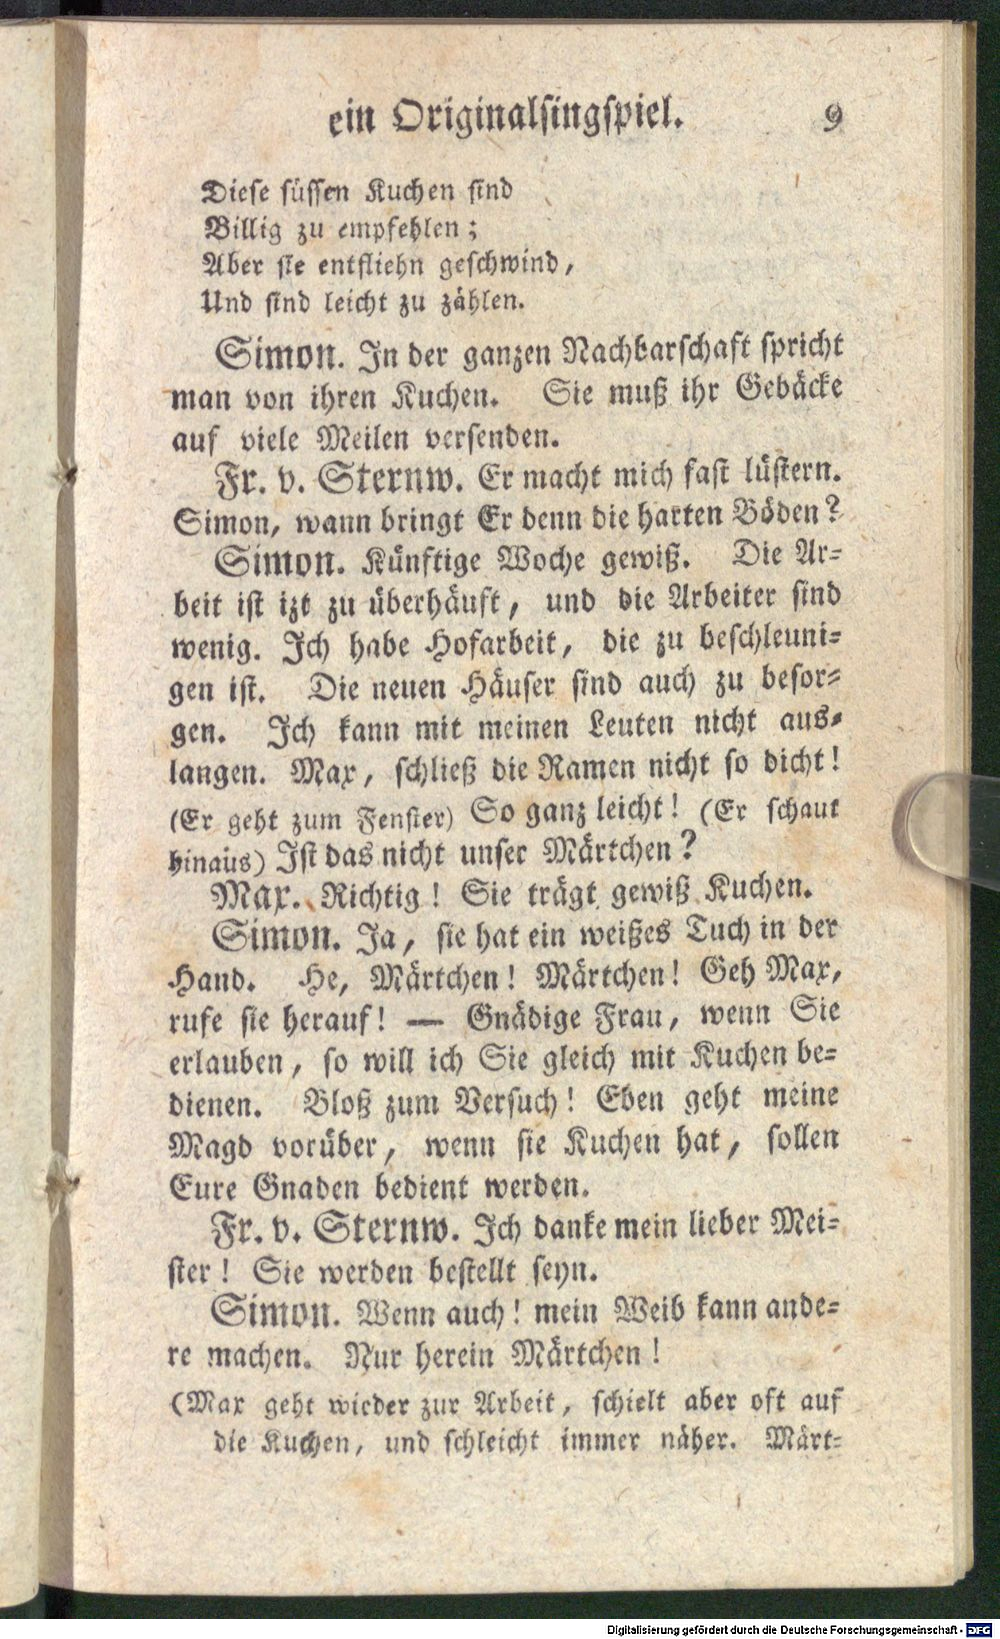 ein Originalsingspiel. 9
Diese süssen Kuchen sind
Billig zu empfehlen;
Aber sie entfliehn geschwind,
Und sind leicht zu zählen.
Simon. In der ganzen Nachbarschaft spricht
man von ihren Kuchen. Sie muß ihr Gebäcke
auf viele Meilen versenden.
Fr. v. Sternw. Er macht mich fast lüstern.
Simon, wann bringt Er denn die harten Böden?
Simon. Künftige Woche gewiß. Die Ar-
beit ist izt zu überhäuft, und die Arbeiter sind
wenig. Ich habe Hofarbeit, die zu beschleuni-
gen ist. Die neuen Häuser sind auch zu besor-
gen. Ich kann mit meinen Leuten nicht aus-
langen. Max, schließ die Ramen nicht so dicht!
(Er geht zum Fenster) So ganz leicht! (Er schaut
hinaus) Ist das nicht unser Märtchen?
Max. Richtig! Sie trägt gewiß Kuchen.
Simon. Ja, sie hat ein weißes Tuch in der
Hand. He, Märtchen! Märtchen! Geh Max,
rufe sie herauf! — Gnädige Frau, wenn Sie
erlauben, so will ich Sie gleich mit Kuchen be-
dienen. Bloß zum Versuch! Eben geht meine
Magd vorüber, wenn sie Kuchen hat, sollen
Eure Gnaden bedient werden.
Fr. v. Sternw. Ich danke mein lieber Mei-
ster! Sie werden bestellt seyn.
Simon. Wenn auch! mein Weib kann ande-
re machen. Nur herein Märtchen!
(Max geht wieder zur Arbeit, schielt aber oft auf
die Kuchen, und schleicht immer näher. Märt-
Digitalisierung gefördert durch die Deutsche Forschungsgemeinschaft - DFG